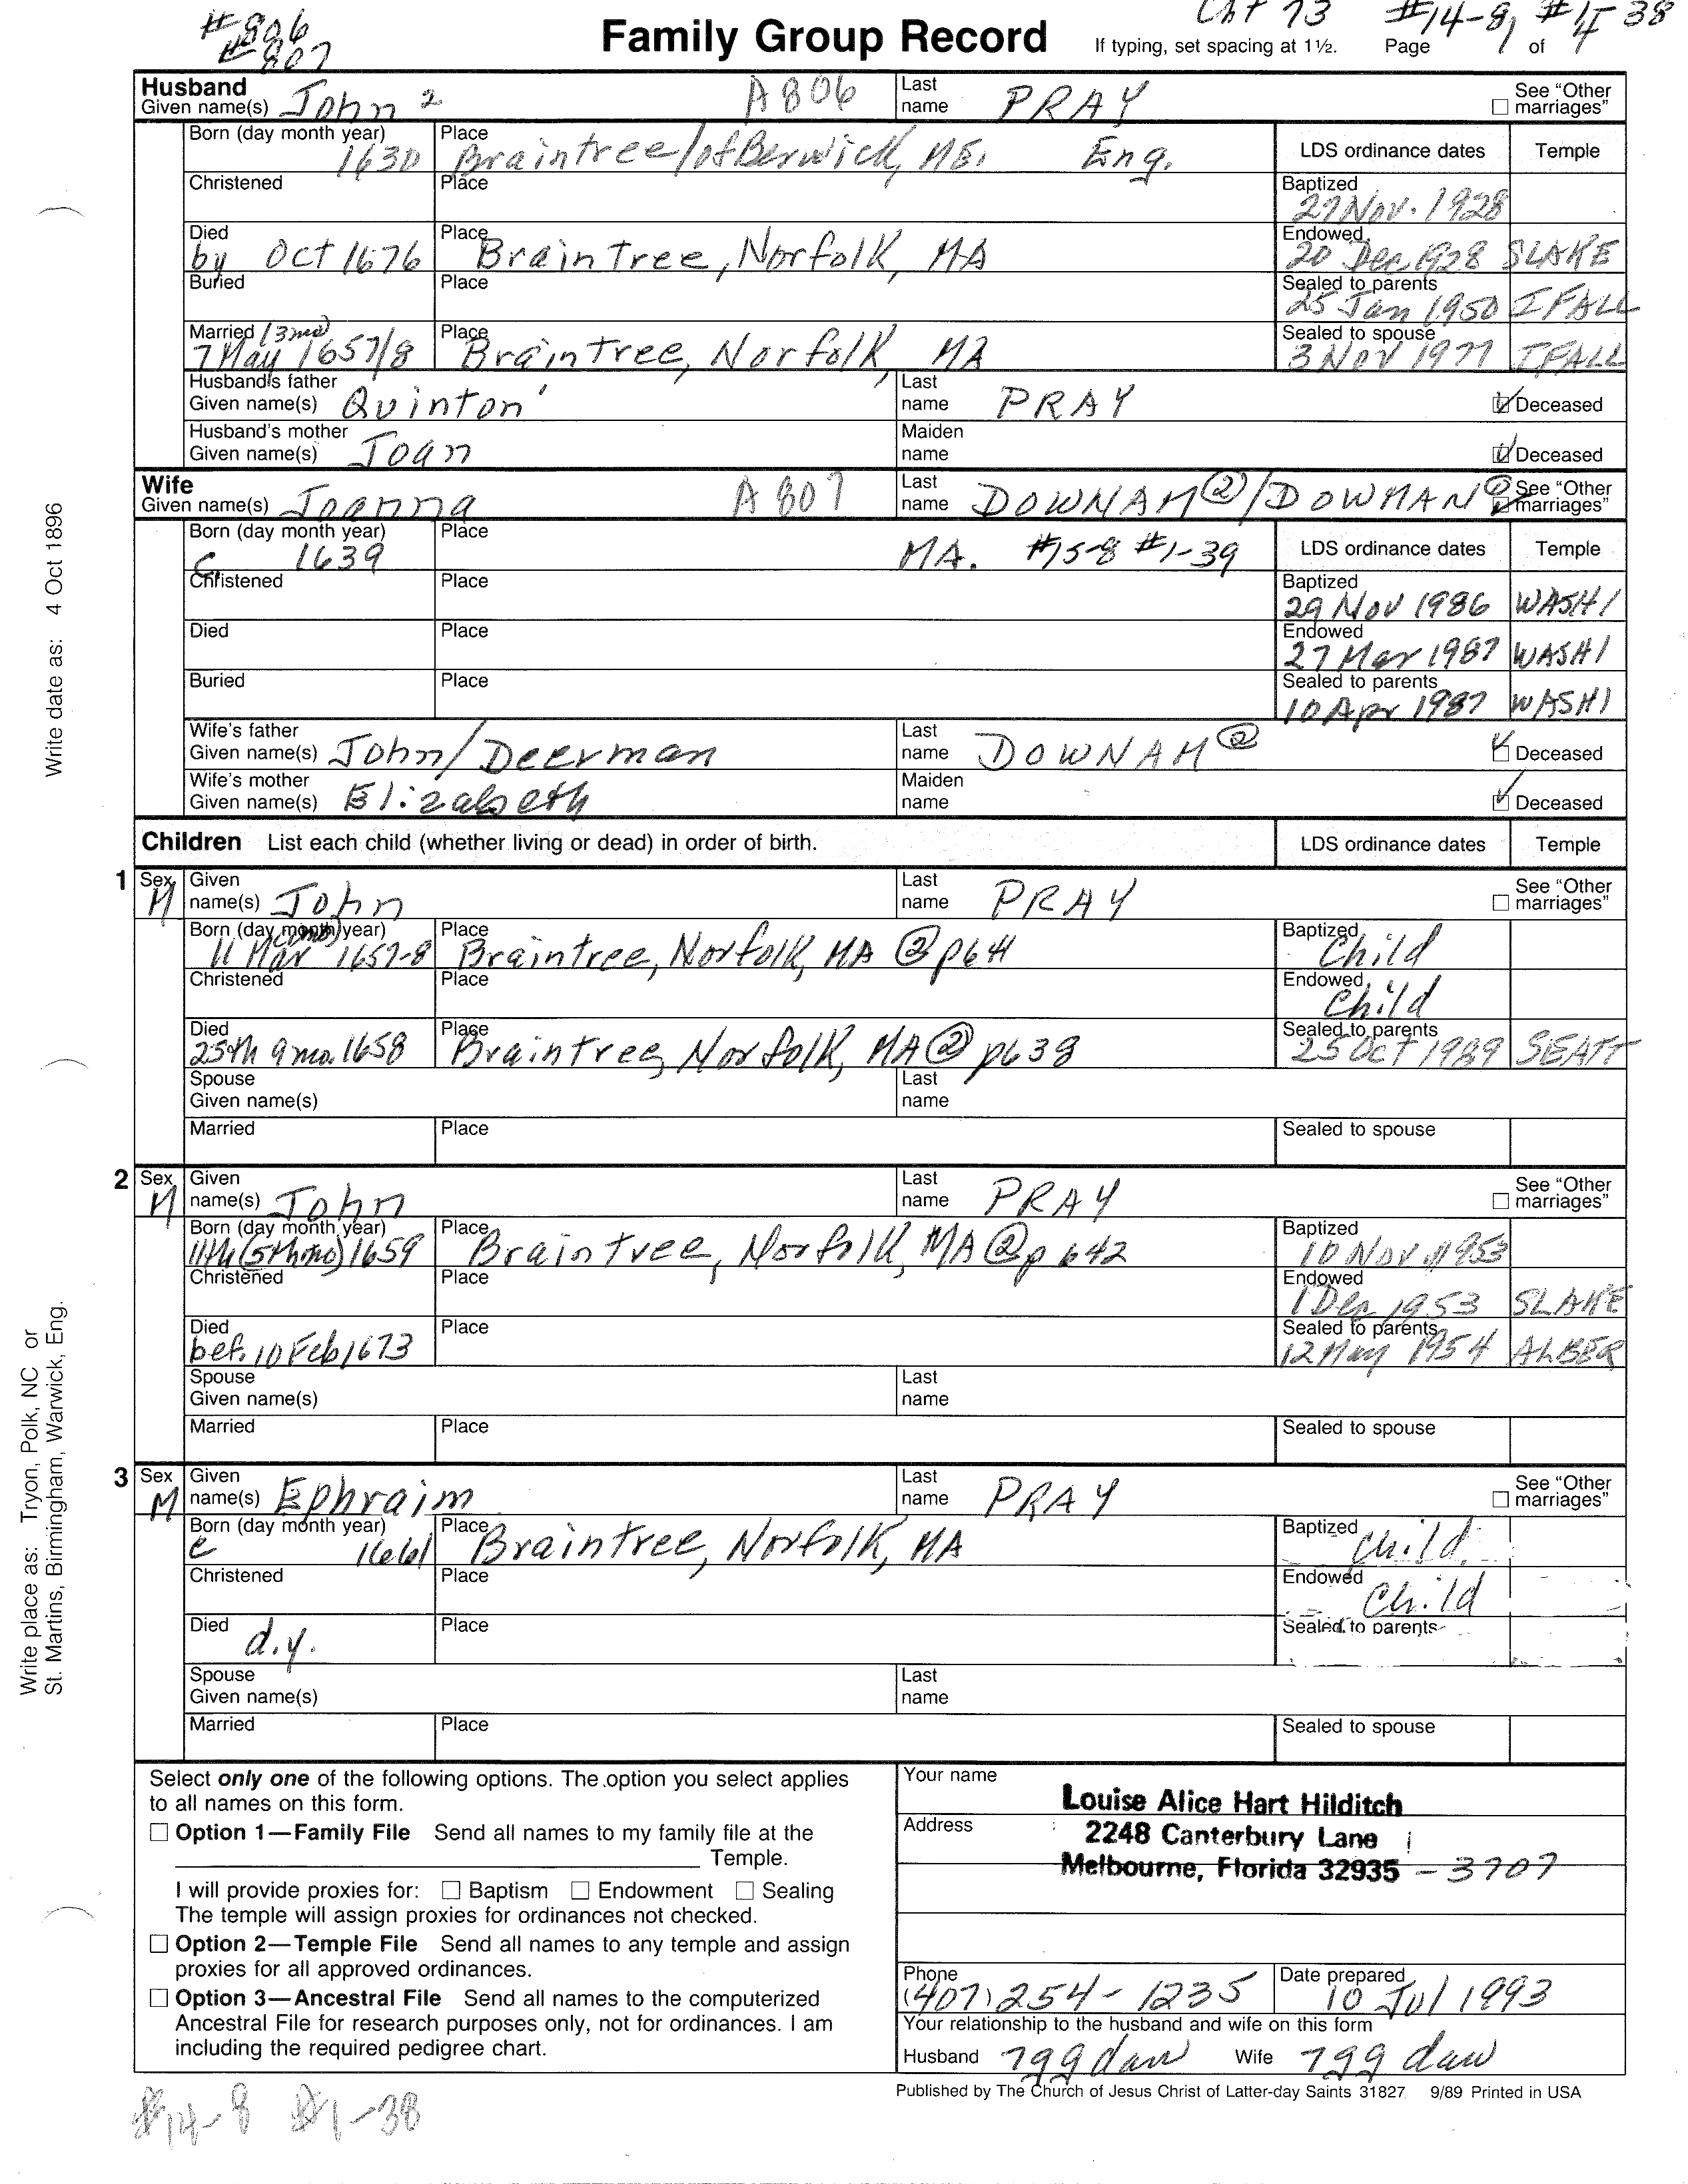 #806
#807
Family Group Record
Cht 73 #14-8, #1-38
If typing, set spacing at 1½. Page 1 of 4
Husband
Given name(s) John 2 A806 Last name PRAY See "Other marriages"
Born (day month year) 1630 Place Braintree/of Berwick, ME. Eng. LDS ordinance dates Temple
Christened Place Baptized 27 Nov. 1928
Died by Oct 1676 Place Braintree, Norfolk, MA Endowed 20 Dec 1928 SLAKE
Buried Place Sealed to parents 25 Jan 1950 IFALL
Married (3mo) 7 May 1657/8 Place Braintree, Norfolk MA Sealed to spouse 3 Nov 1977 IFALL
Husband's father Given name(s) Quinton' Last name PRAY Deceased
Husband's mother Given name(s) Joan Maiden name Deceased
Wife
Given name(s) Joanna A807 Last name DOWNAM@/DOWMAN@ See "Other marriages"
Born (day month year) c 1639 Place MA. #15-8 #1-39 LDS ordinance dates Temple
Christened Place Baptized 29 Nov 1986 WASHI
Died Place Endowed 27 Mar 1987 WASHI
Buried Place Sealed to parents 10 Apr 1987 WASHI
Wife's father Given name(s) John/Deerman Last name DOWNAM@ Deceased
Wife's mother Given name(s) Elizabeth Maiden name Deceased
Children List each child (whether living or dead) in order of birth. LDS ordinance dates Temple
1 Sex M Given name(s) John Last name PRAY See "Other marriages"
Born (day month year) 11 Mar 1657-8 Place Braintree, Norfolk, MA @ p641 Baptized Child
Christened Place Endowed Child
Died 25th 9mo. 1658 Place Braintree, Norfolk, MA @ p638 Sealed to parents 25 Oct 1989 SEATT
Spouse Given name(s) Last name
Married Place Sealed to spouse
2 Sex M Given name(s) John Last name PRAY See "Other marriages"
Born (day month year) 11th (5th mo) 1659 Place Braintree, Norfolk, MA @ p 642 Baptized 10 Nov 1953
Christened Place Endowed 1 Dec 1953 SLAKE
Died bef. 10 Feb 1673 Place Sealed to parents 12 May 1954 ALBER
Spouse Given name(s) Last name
Married Place Sealed to spouse
3 Sex M Given name(s) Ephraim Last name PRAY See "Other marriages"
Born (day month year) c 1661 Place Braintree, Norfolk, MA Baptized Child
Christened Place Endowed Child
Died d.y. Place Sealed to parents
Spouse Given name(s) Last name
Married Place Sealed to spouse
Select only one of the following options. The option you select applies
to all names on this form.
Option 1—Family File Send all names to my family file at the
Temple.
I will provide proxies for: Baptism Endowment Sealing
The temple will assign proxies for ordinances not checked.
Option 2—Temple File Send all names to any temple and assign
proxies for all approved ordinances.
Option 3—Ancestral File Send all names to the computerized
Ancestral File for research purposes only, not for ordinances. I am
including the required pedigree chart.
Your name Louise Alice Hart Hilditch
Address 2248 Canterbury Lane
Melbourne, Florida 32935 - 3707
Phone (407) 254-1235 Date prepared 10 Jul 1993
Your relationship to the husband and wife on this form
Husband 7ggdau Wife 7gg dau
Published by The Church of Jesus Christ of Latter-day Saints 31827 9/89 Printed in USA
#14-8 #1-38
Write date as: 4 Oct 1896
Write place as: Tryon, Polk, NC or
St. Martins, Birmingham, Warwick, Eng.